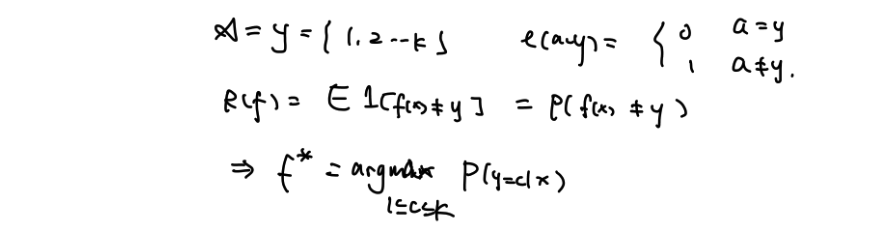 𝒜 = 𝒴 = { 1, 2 -- k }   ℓ(a,y) = { 0 a = y
1 a ≠ y.
R(f) = E 1[f(x) ≠ y] = P( f(x) ≠ y )
⇒ f* = argmax P(y=c|x)
1≤c≤k